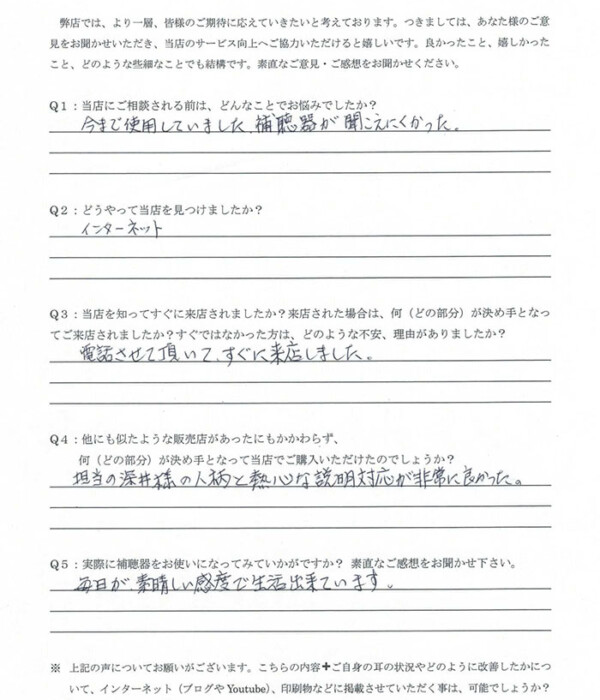 弊店では、より一層、皆様のご期待に応えていきたいと考えております。つきましては、あなた様のご意
見をお聞かせいただき、当店のサービス向上へご協力いただけると嬉しいです。良かったこと、嬉しかった
こと、どのような些細なことでも結構です。素直なご意見・ご感想をお聞かせください。
Q1：当店にご相談される前は、どんなことでお悩みでしたか？
今まで使用していました、補聴器が聞こえにくかった。
Q2：どうやって当店を見つけましたか？
インターネット
Q3：当店を知ってすぐに来店されましたか？来店された場合は、何（どの部分）が決め手となっ
てご来店されましたか？すぐではなかった方は、どのような不安、理由がありましたか？
電話させて頂いて、すぐに来店しました。
Q4：他にも似たような販売店があったにもかかわらず、
何（どの部分）が決め手となって当店でご購入いただけたのでしょうか？
担当の深井様の人柄と熱心な説明対応が非常に良かった。
Q5：実際に補聴器をお使いになってみていかがですか？ 素直なご感想をお聞かせ下さい。
毎日が、素晴しい感度で生活出来ています。
※ 上記の声についてお願いがございます。こちらの内容✚ご自身の耳の状況やどのように改善したかにつ
いて、インターネット（ブログや Youtube）、印刷物などに掲載させていただく事は、可能でしょうか？